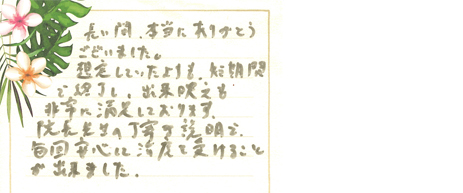 長い間、本当にありがとう
ございました。
想定していたよりも、短期間
で終了し、出来映えも
非常に満足しております。
院長先生の丁寧な説明で、
毎回安心に治療を受けること
が出来ました。